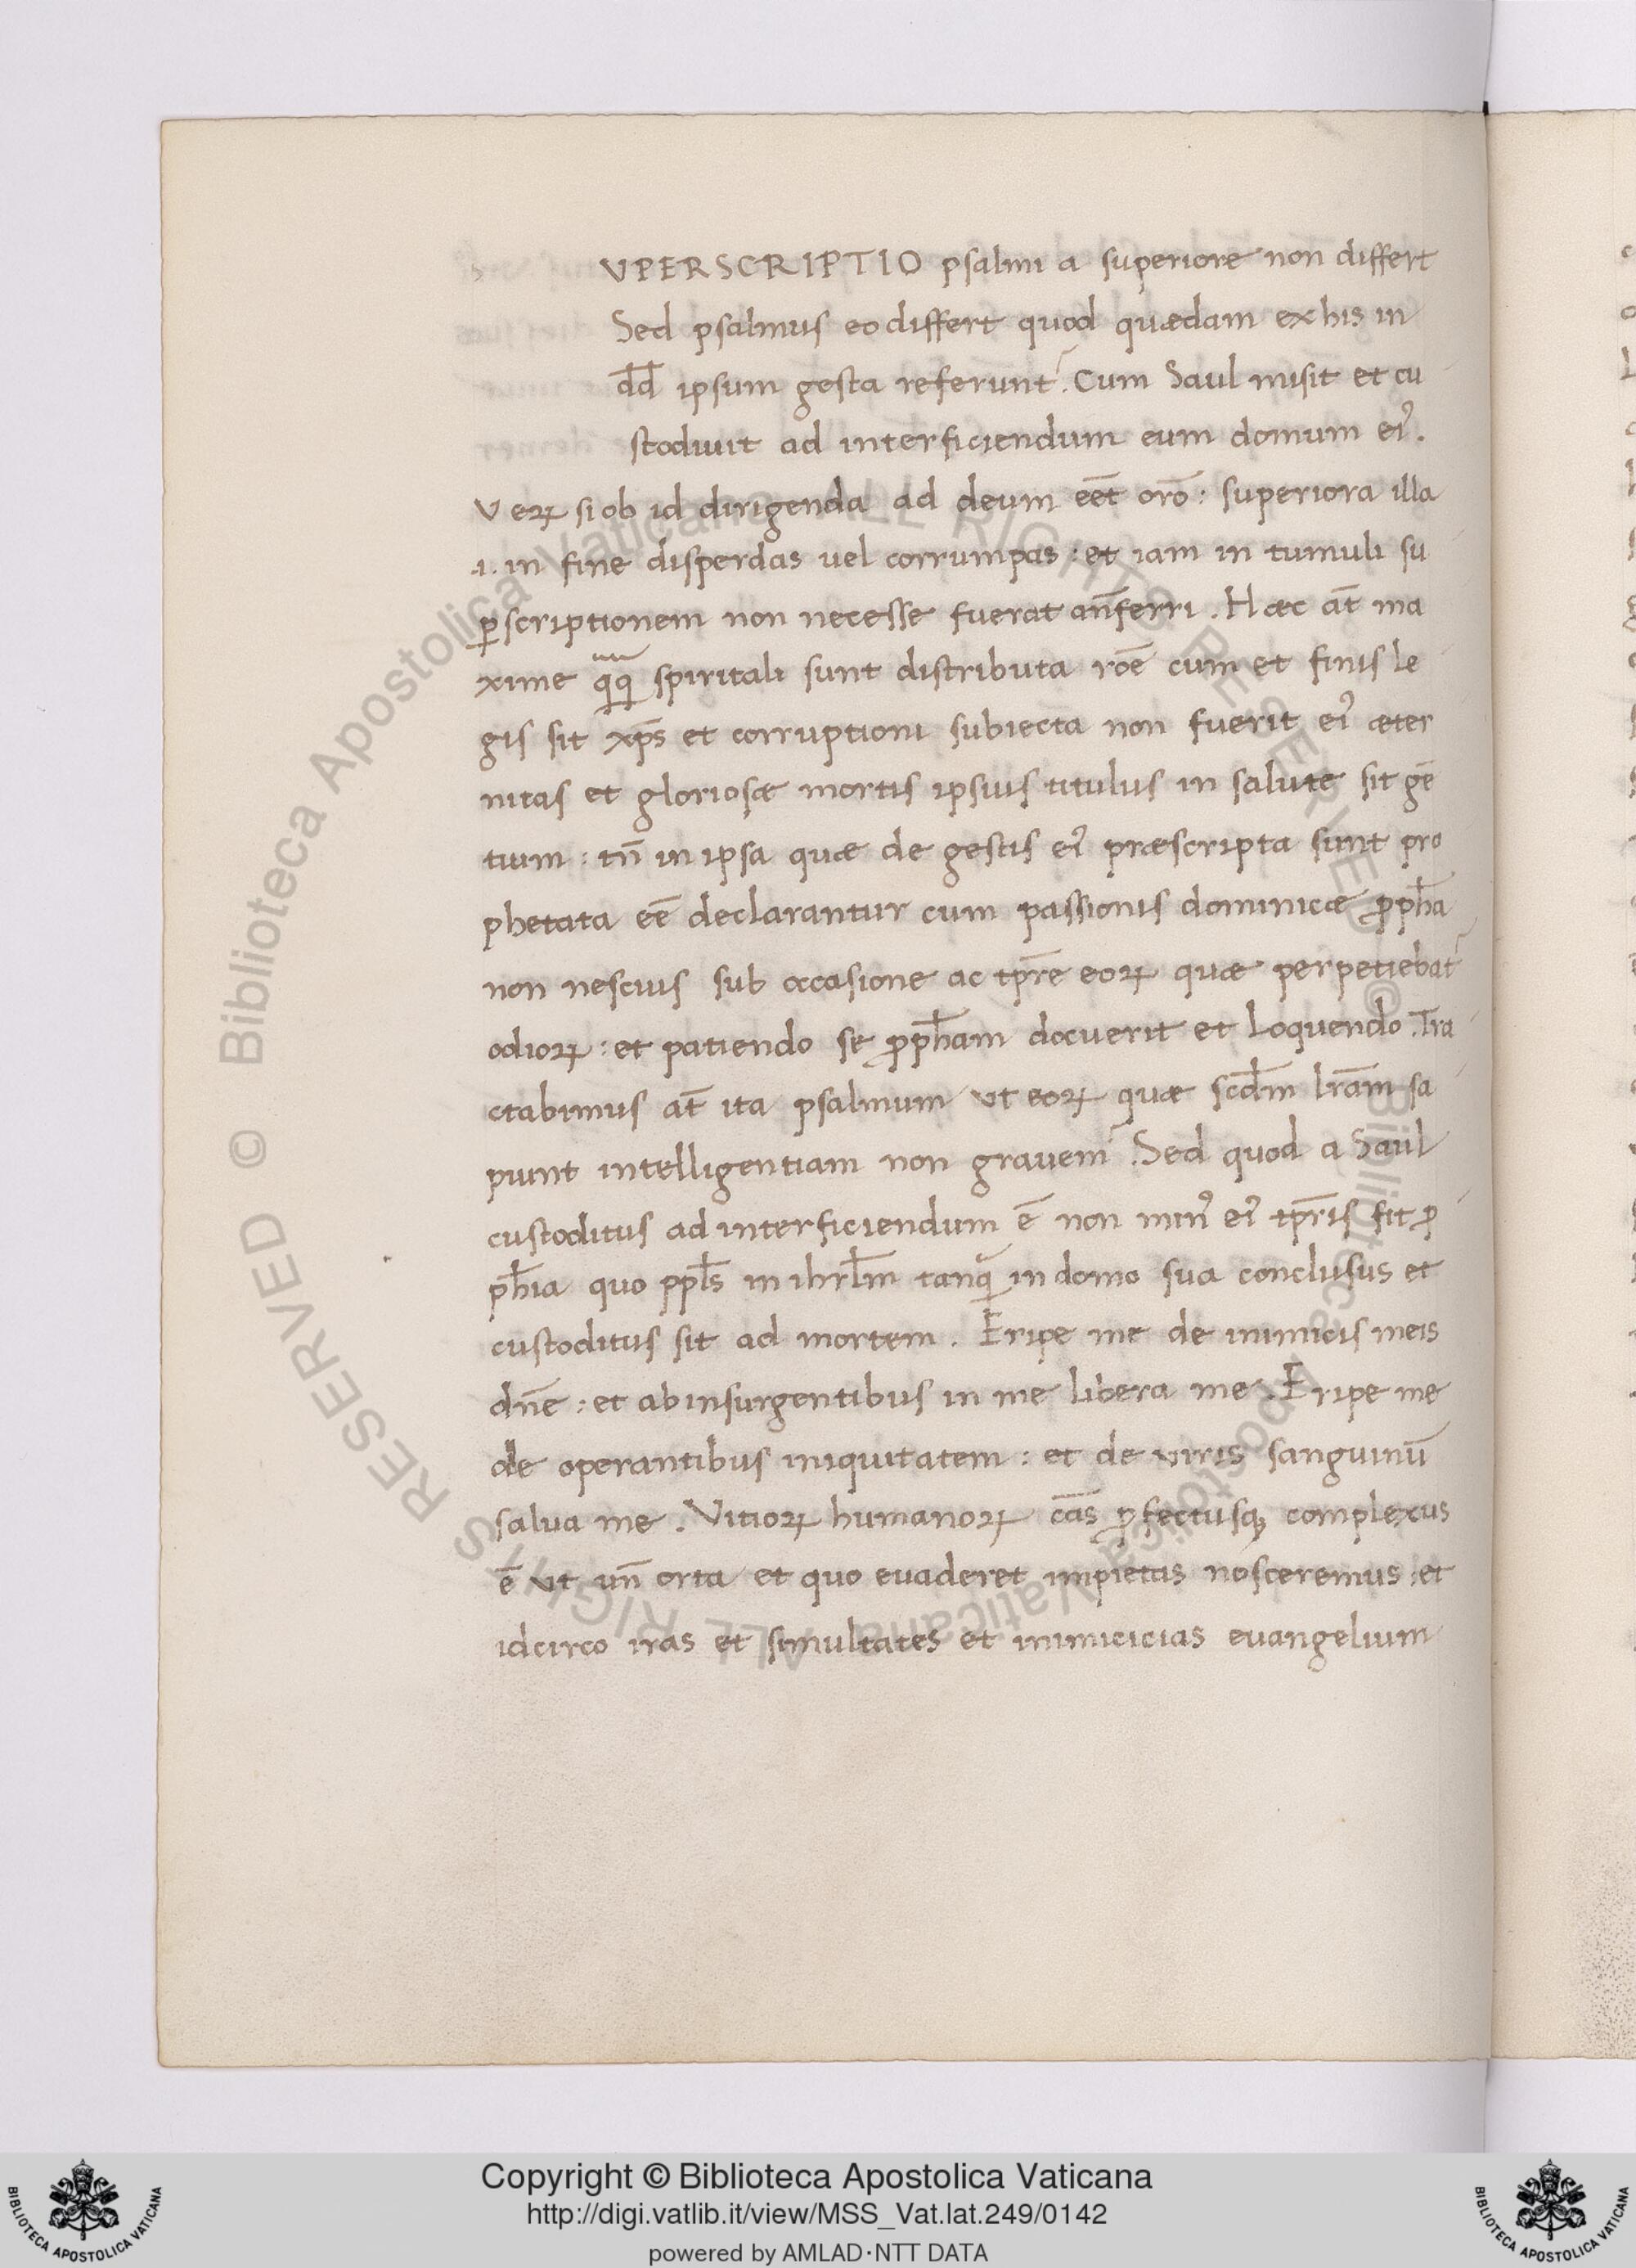 VPERSCRIPTIO psalmi a superiore non differt
Sed psalmus eo differt quod quædam ex his in
dd̄ ipsum gesta referunt᷑. Cum Saul misit et cu
stodiuit ad interficiendum eum domum eiꝰ.
Veꝝ si ob id dirigenda ad deum eēt orō: superiora illa
.i. in fine disperdas uel corrumpas: et iam in tumuli su
ꝑscriptionem non necesse fuerat an̄ferri. Hæc at̄ ma
xime qꝗ spiritali sunt distributa roē cum et finis le
gis sit xp̄s et corruptioni subiecta non fuerit eiꝰ æter
nitas et gloriosæ mortis ipsius titulus in salute sit gē
tium: tn̄ in ipsa quæ de gestis eiꝰ præscripta sunt pro
phetata eē declarantur cum passionis dominicæ ꝓph̄a
non nescius sub occasione ac tp̄re eoꝝ quæ perpetiebat᷑
odioꝝ: et patiendo se ꝓph̄am docuerit et loquendo. Tra
ctabimus at̄ ita psalmum ut eoꝝ quæ scd̄m lr̄am sa
piunt intelligentiam non grauem᷑. Sed quod a Saul
custoditus ad interficiendum ē non minꝰ eiꝰ tp̄ris fit ꝓ
ph̄ia quo ppl̄s in ihrl̄m tanꝗ in domo sua conclusus et
custoditus sit ad mortem. Eripe me de inimicis meis
dn̄e: et ab insurgentibus in me libera me. Eripe me
de operantibus iniquitatem: et de uiris sanguinū
salua me. Vitioꝝ humanoꝝ cās ꝓfectusqꝫ complexus
ē ut un̄ orta et quo euaderet impietas nosceremus: et
idcirco iras et simultates et inimicicias euangelium
Copyright © Biblioteca Apostolica Vaticana
http://digi.vatlib.it/view/MSS_Vat.lat.249/0142
powered by AMLAD·NTT DATA
BIBLIOTECA APOSTOLICA VATICANA
BIBLIOTECA APOSTOLICA VATICANA
© Biblioteca Apostolica Vaticana ALL RIGHTS RESERVED © Biblioteca Apostolica Vaticana ALL RIGHTS RESERVED